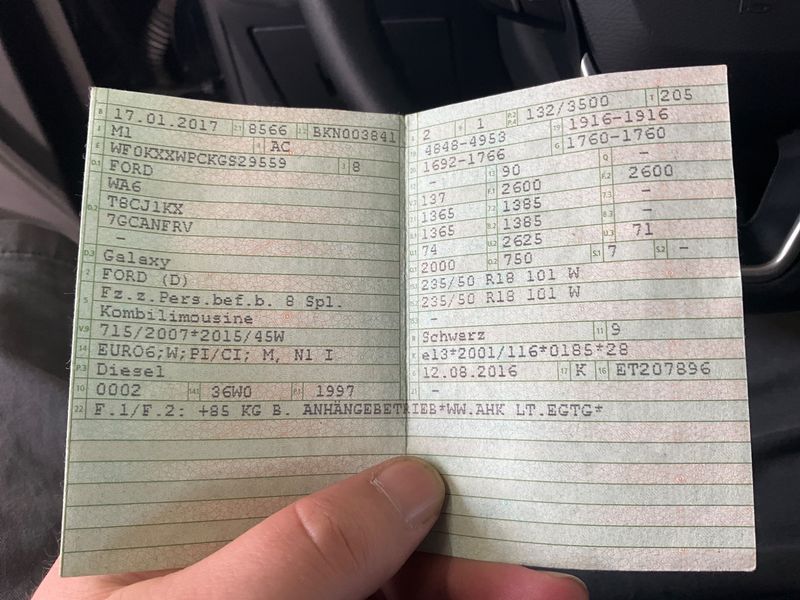 B 17.01.2017 2.1 8566 2.2 BKN003841
J M1 4 AC
E WF0KXXWPCKGS29559 3 8
D.1 FORD
WA6
D.2 T8CJ1KX
7GCANFRV
–
D.3 Galaxy
2 FORD (D)
5 Fz.z.Pers.bef.b. 8 Spl.
Kombilimousine
V.9 715/2007*2015/45W
14 EURO6;W;PI/CI; M, N1 I
P.3 Diesel
10 0002 14.1 36W0 P.1 1997
22 F.1/F.2: +85 KG B. ANHÄNGEBETRIEB*WW.AHK LT.EGTG*
L 2 9 1 P.2 P.4 132/3500 T 205
18 4848-4953 19 1916-1916
20 1692-1766 G 1760-1760
12 – 13 90 Q –
V.7 137 F.1 2600 F.2 2600
7.1 1365 7.2 1385 7.3 –
8.1 1365 8.2 1385 8.3 –
U.1 74 U.2 2625 U.3 71
O.1 2000 O.2 750 S.1 7 S.2 –
15.1 235/50 R18 101 W
15.2 235/50 R18 101 W
15.3 –
R Schwarz 11 9
K e13*2001/116*0185*28
6 12.08.2016 17 K 16 ET207896
21 –